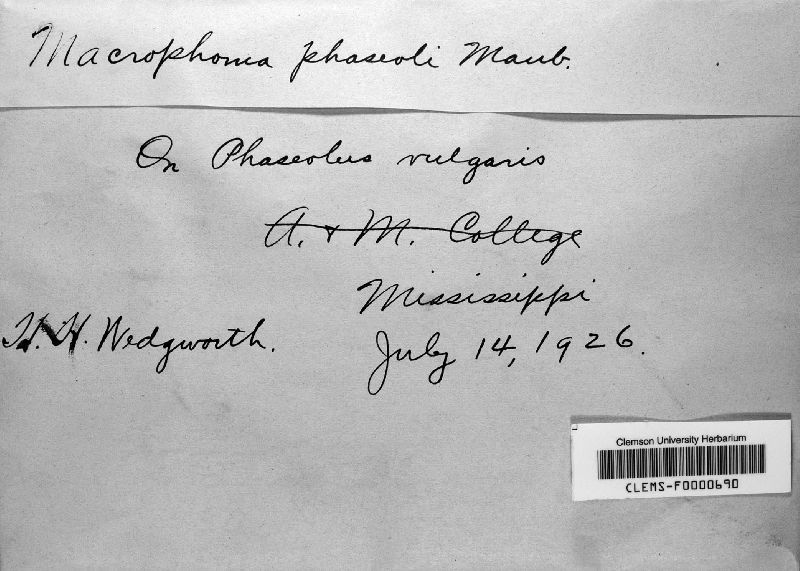 Macrophoma phaseoli Maub.
On Phaseolus vulgaris
A. & M. College
Mississippi
H. H. Wedgworth.
July 14, 1926.
Clemson University Herbarium
CLEMS-F0000690